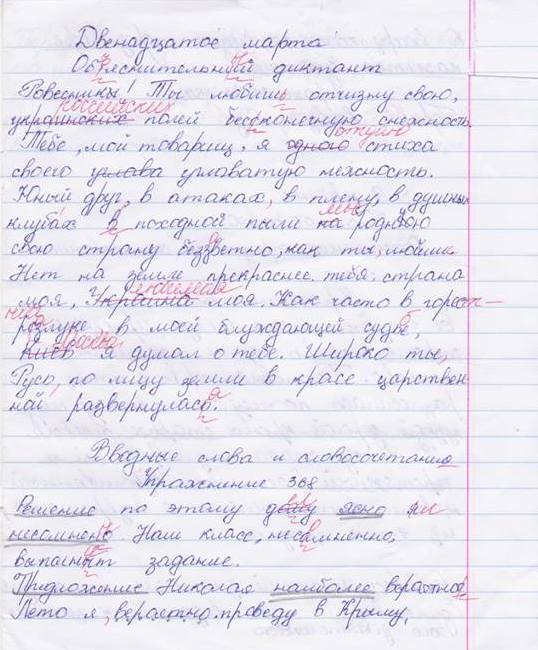 Двенадцатое марта
Объяснительный диктант
Ровесники! Ты любишь отчизну свою,
российских
украинских полей бесконечную снежность.
отдаю
Тебе, мой товарищ, я одного стиха
своего углава угловатую нежность.
Юный друг, в атаках, в плену, в душных
клубах в походной пыли на родную
свою страну беззветно, как ты, любим.
Нет на земле прекраснее тебя страна
любимая
моя, Украина моя. Как часто в горест-
ной
розлуке, в моей блуждающей судьбе,
Москва
Киев я думал о тебе. Широко ты,
Русь, по лицу земли в красе царствен-
ной развернулась.
Вводные слова и словосочетание
Упражнение 368
Решение по этому делу ясно и
несомнено. Наш класс, несомненно,
выполнит задание.
Предложение Николая наиболее вероятное.
Лето я, вероятно, проведу в Крыму.